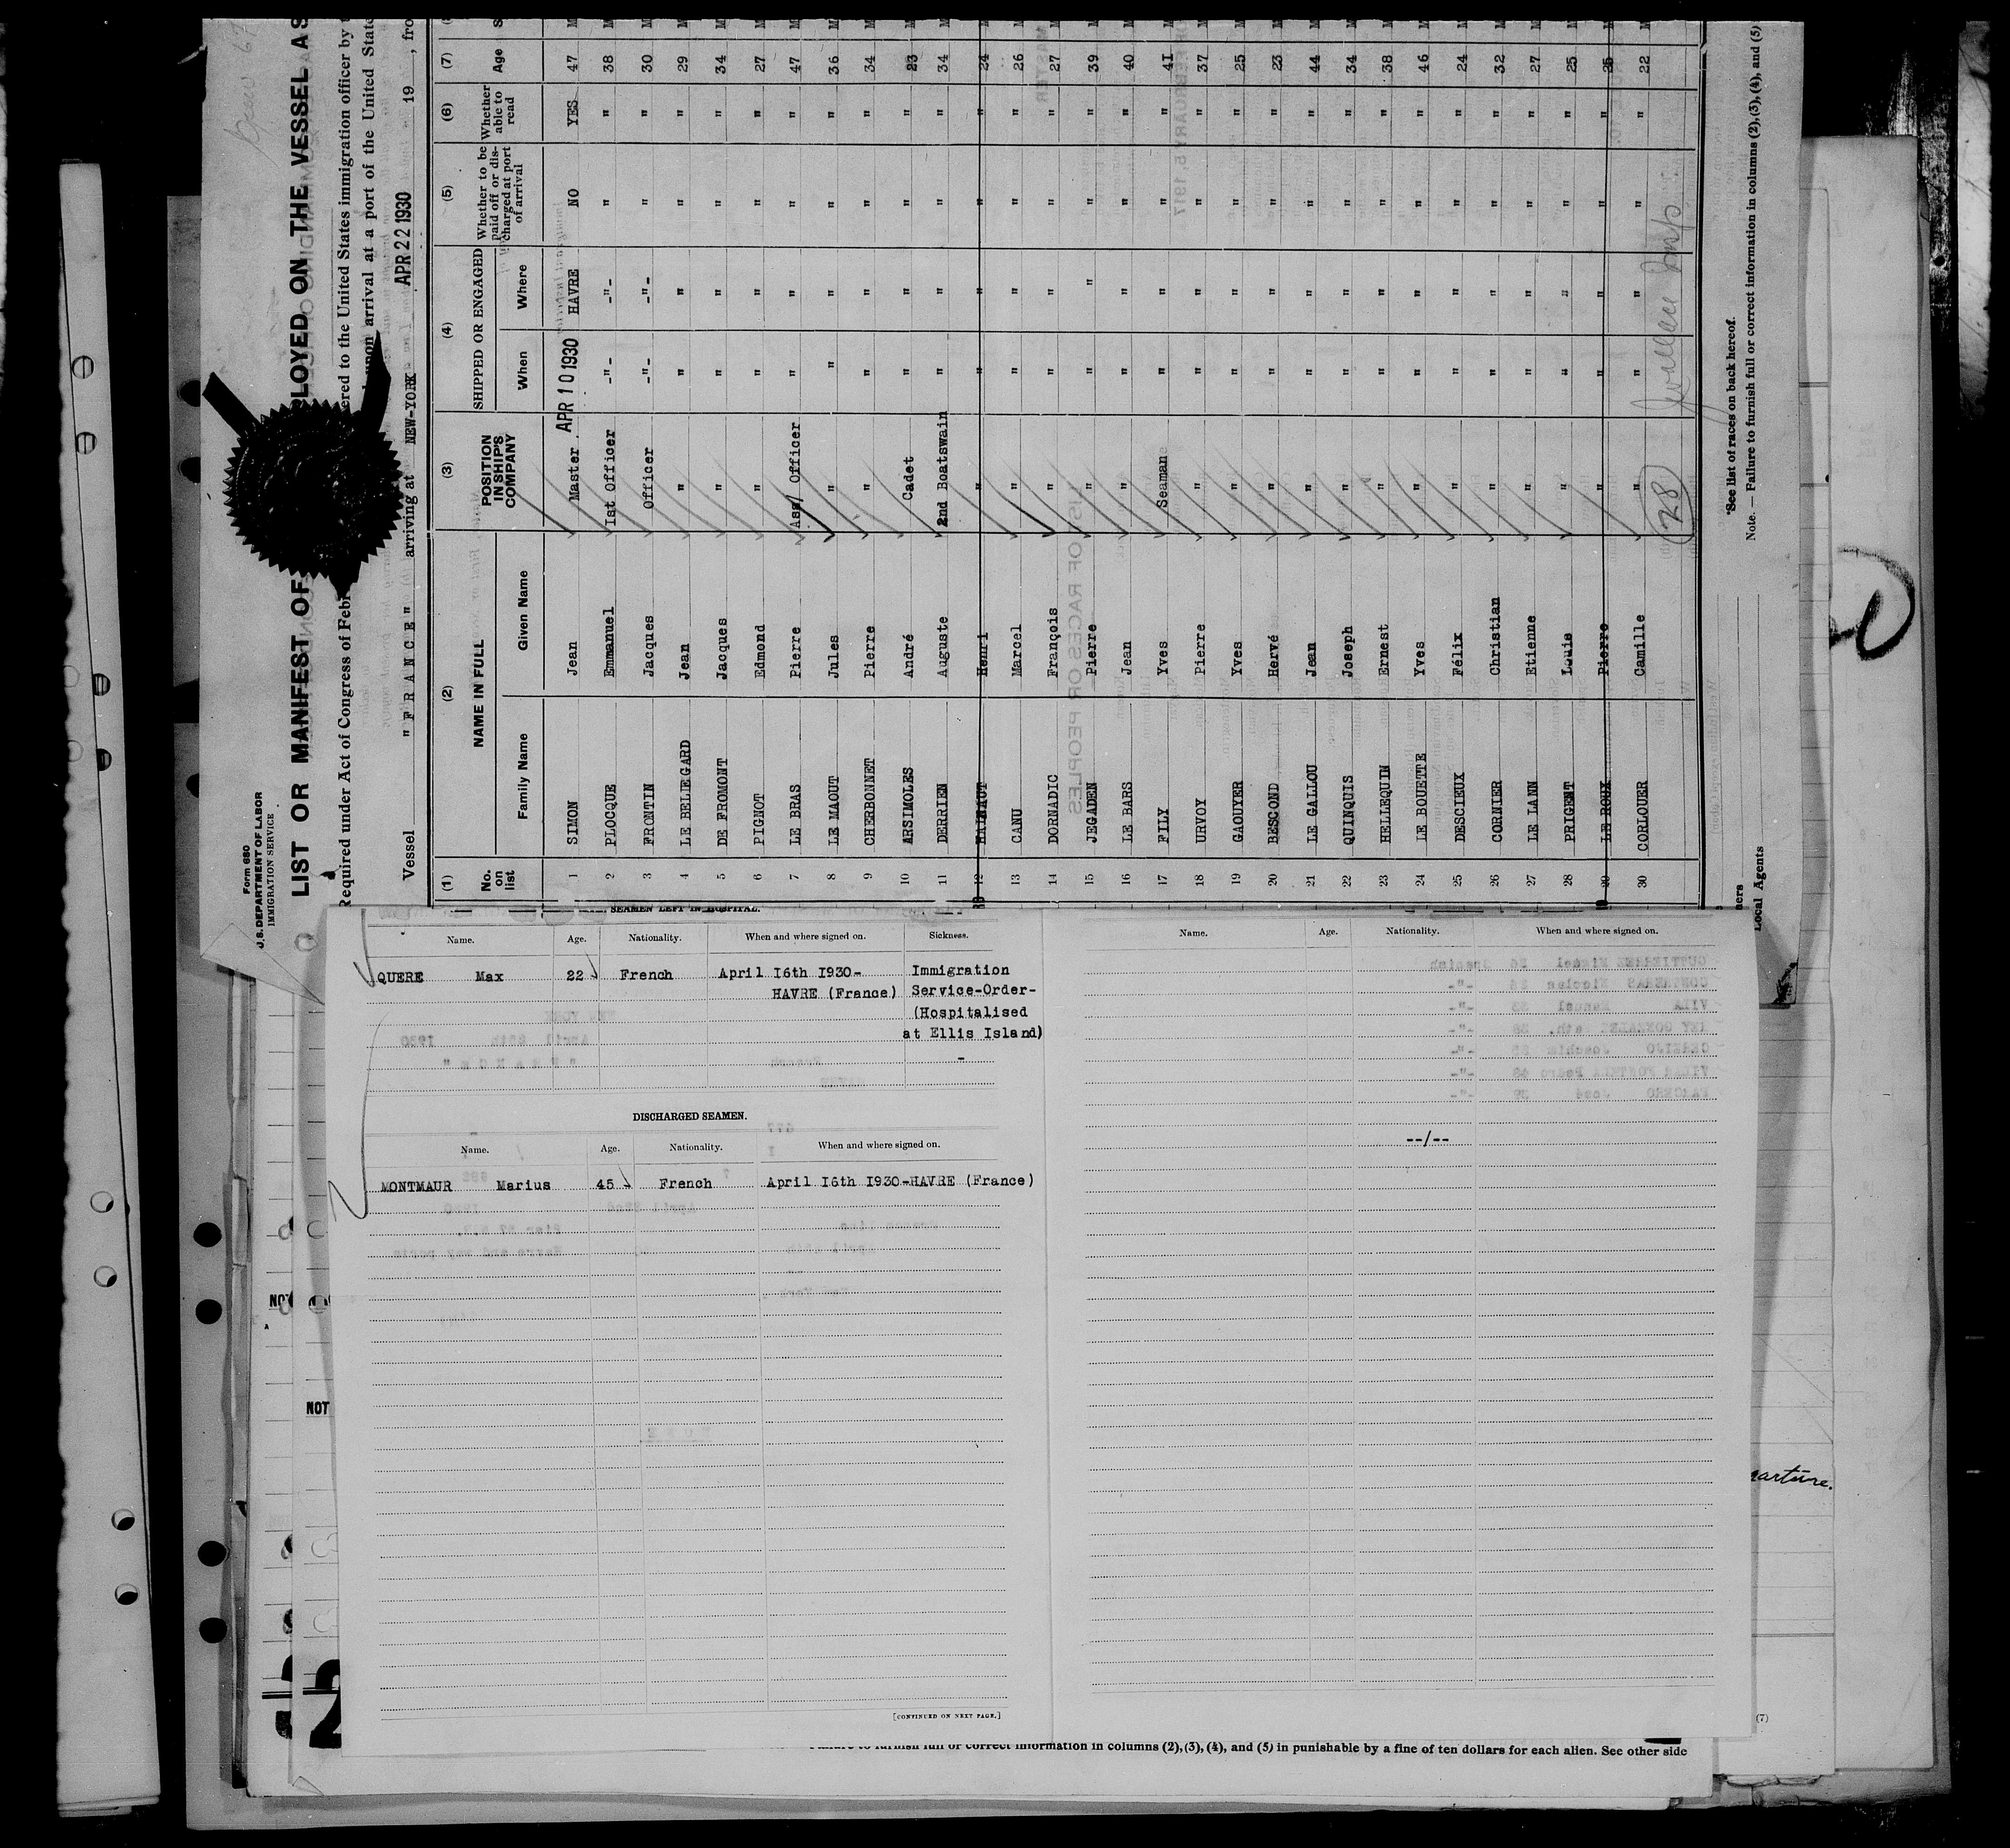 Form 680
U.S. DEPARTMENT OF LABOR
IMMIGRATION SERVICE
LIST OR MANIFEST OF OYED ON THE VESSEL AS
Required under Act of Congress of Feb ered to the United States immigration officer by
upon arrival at a port of the United State
Vessel " F R A N C E " arriving at NEW-YORK APR 22 1930 19 , fro
(1) (2) (3) (4) (5) (6) (7)
No. on list NAME IN FULL POSITION IN SHIP'S COMPANY SHIPPED OR ENGAGED Whether to be paid off or discharged at port of arrival Whether able to read Age
Family Name Given Name When Where
1 SIMON Jean Master APR 10 1930 HAVRE NO YES 47
2 PLOCQUE Emmanuel 1st Officer -"- -"- " " 38
3 FRONTIN Jacques Officer -"- -"- " " 30
4 LE BELLEGARD Jean " " " " " 29
5 DE FROMONT Jacques " " " " " 34
6 PIGNOT Edmond " " " " " 27
7 LE BRAS Pierre Ass/ Officer " " " " 47
8 LE MAOUT Jules " " " " " 36
9 CHERBONNET Pierre " " " " " 34
10 ARSIMOLES André Cadet " " " " 23
11 DERRIEN Auguste 2nd Boatswain " " " " 34
12 HAINAUT Henri " " " " " 24
13 CANU Marcel " " " " " 26
14 DORNADIC François " " " " " 27
15 JEGADEN Pierre " " " " " 39
16 LE BARS Jean " " " " " 40
17 FILY Yves Seaman " " " " 41
18 URVOY Pierre " " " " " 37
19 GAOUYER Yves " " " " " 25
20 BESCOND Hervé " " " " " 23
21 LE GALLOU Jean " " " " " 44
22 QUINQUIS Joseph " " " " " 34
23 HELLEQUIN Ernest " " " " " 38
24 LE BOUETTE Yves " " " " " 46
25 DESCIEUX Félix " " " " " 24
26 CORNIER Christian " " " " " 32
27 LE LANN Etienne " " " " " 27
28 PRIGENT Louis " " " " " 25
29 LE ROUX Pierre " " " " " 25
30 CORLOUER Camille " " " " " 22
28
*See list of races on back hereof.
Note. — Failure to furnish full or correct information in columns (2), (3), (4), and (5)
ners
Local Agents
SEAMEN LEFT IN HOSPITAL.
Name. Age. Nationality. When and where signed on. Sickness.
QUERE Max 22 French April 16th 1930- Immigration
HAVRE (France) Service-Order-
(Hospitalised
at Ellis Island)
-
DISCHARGED SEAMEN.
Name. Age. Nationality. When and where signed on.
MONTMAUR Marius 45 French April 16th 1930-HAVRE (France)
[CONTINUED ON NEXT PAGE.]
Name. Age. Nationality. When and where signed on.
--/--
NOT
NOT
2
arture.
(7)
Failure to furnish full or correct information in columns (2), (3), (4), and (5) in punishable by a fine of ten dollars for each alien. See other side